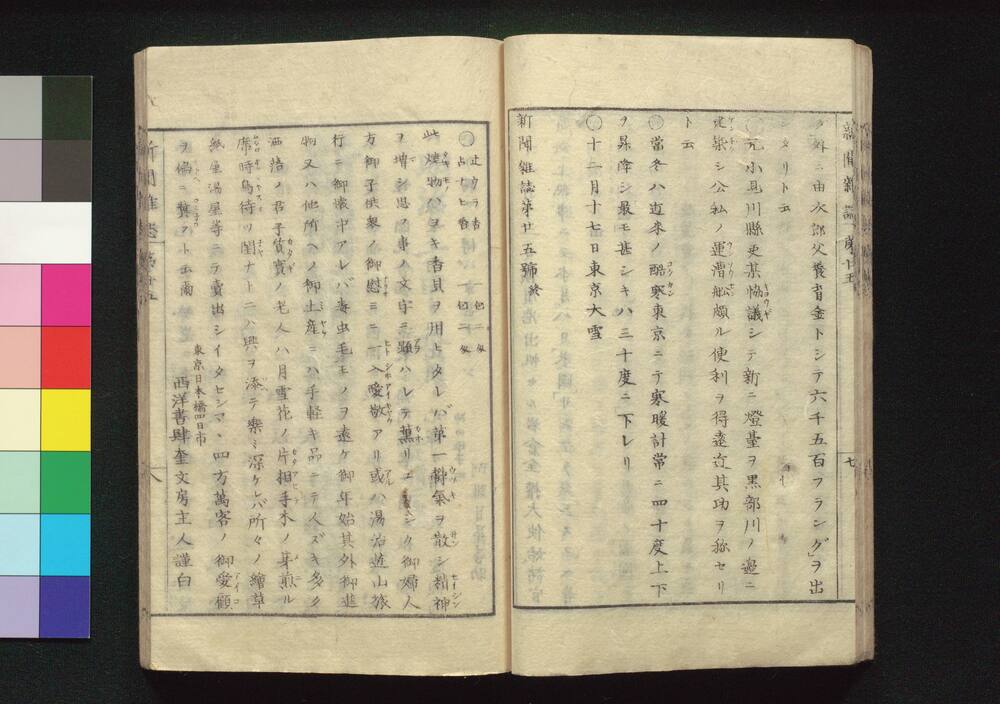 新聞雜誌 第廿五
ノ外ニ由次郎父養育金トシテ六千五百フランクヲ出
シタリト云
○元小見川縣吏某協議シテ新ニ燈臺ヲ黒部川ノ邊ニ
建築シ公私ノ運漕舩頗ル便利ヲ得遠近其功ヲ称セリ
ト云
○當冬ハ近來ノ酷寒東京ニテ寒暖計常ニ四十度上下
ヲ昇降シ最モ甚シキハ三十度ニ下レリ
○十二月十七日東京大雪
新聞雜誌第廿五號終
七
○辻ウラ香 一包二匁
占ナヒ香 一包二匁
此燒物ハヲキ香貝ヲ用ヒタレバ第一欝氣ヲ散シ精神
ヲ増シ思フ事ハ文字ニ顕ハレテ薫リ
シク御婦人
方御子供衆ノ御慰ミニ一入愛敬アリ或ハ湯治遊山旅
行ニ御懐中アレバ毒虫毛モノヲ遠ケ御年始其外御進
物又ハ他所ヘノ御土産ニハ手軽キ品ニテ人ズキ多ク
洒落ノ君子質實ノ老人ハ月雪花ノ片相手木ノ芽煎ル
席時鳥待ツ閨ナトニハ興ヲ添テ樂ミ深ケレバ所々ノ繪草
紙屋湯屋等ニテ賣出シイタセシマヽ四方萬客ノ御愛顧
ヲ偏ニ冀フト云爾
東京日本橋四日市
西洋書肆奎文房主人謹白
新聞雜誌 第廿五
八